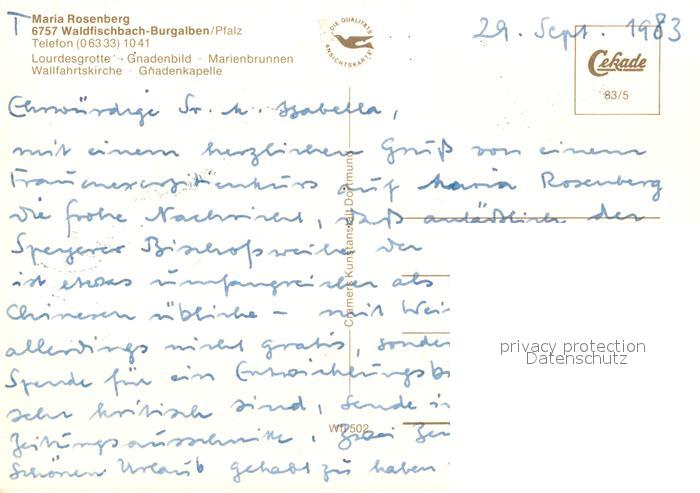 T
Maria Rosenberg
6757 Waldfischbach-Burgalben/Pfalz
Telefon (0 63 33) 10 41
Lourdesgrotte · Gnadenbild · Marienbrunnen
Wallfahrtskirche · Gnadenkapelle
DIE QUALITÄTS ANSICHTSKARTE
29. Sept. 1983
Cekade
83/5
Ehrwürdige Sr. M. Isabella,
mit einem herzlichen Gruß von einem
Frauenexerzitienkurs auf Maria Rosenberg
die frohe Nachricht, daß anläßlich der
Speyerer Bischofsweihe der
ist etwas umfangreicher als
Chinesen übliche – mit Wei
allerdings nicht gratis, sonder
Spende für ein Entwicklungsb
sehr kritisch sind, sende i
Zeitungsausschnitte. Zei
Schönen Urlaub gehabt zu haben
Cramers Kunstanstalt Dortmund
Wh 502
privacy protection
Datenschutz